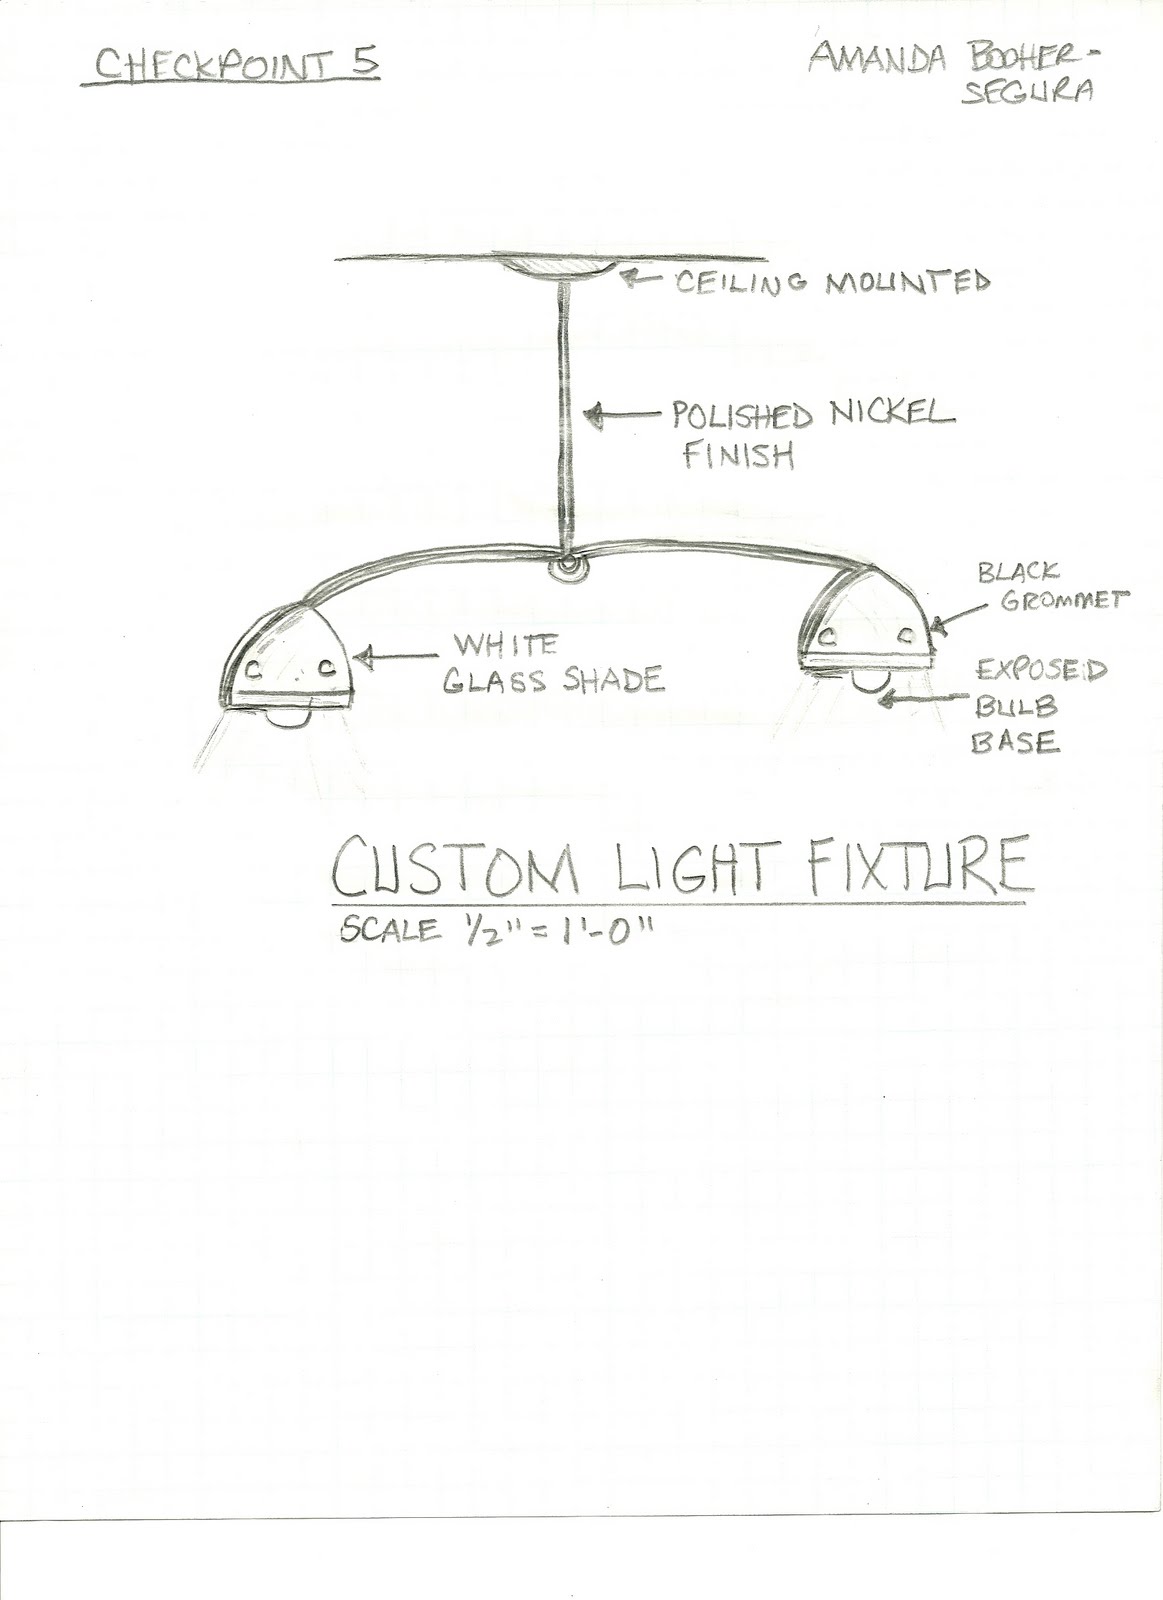 CHECKPOINT 5
AMANDA BOOHER-
SEGURA
CEILING MOUNTED
POLISHED NICKEL
FINISH
BLACK
GROMMET
WHITE
GLASS SHADE
EXPOSED
BULB
BASE
CUSTOM LIGHT FIXTURE
SCALE 1/2" = 1'-0"